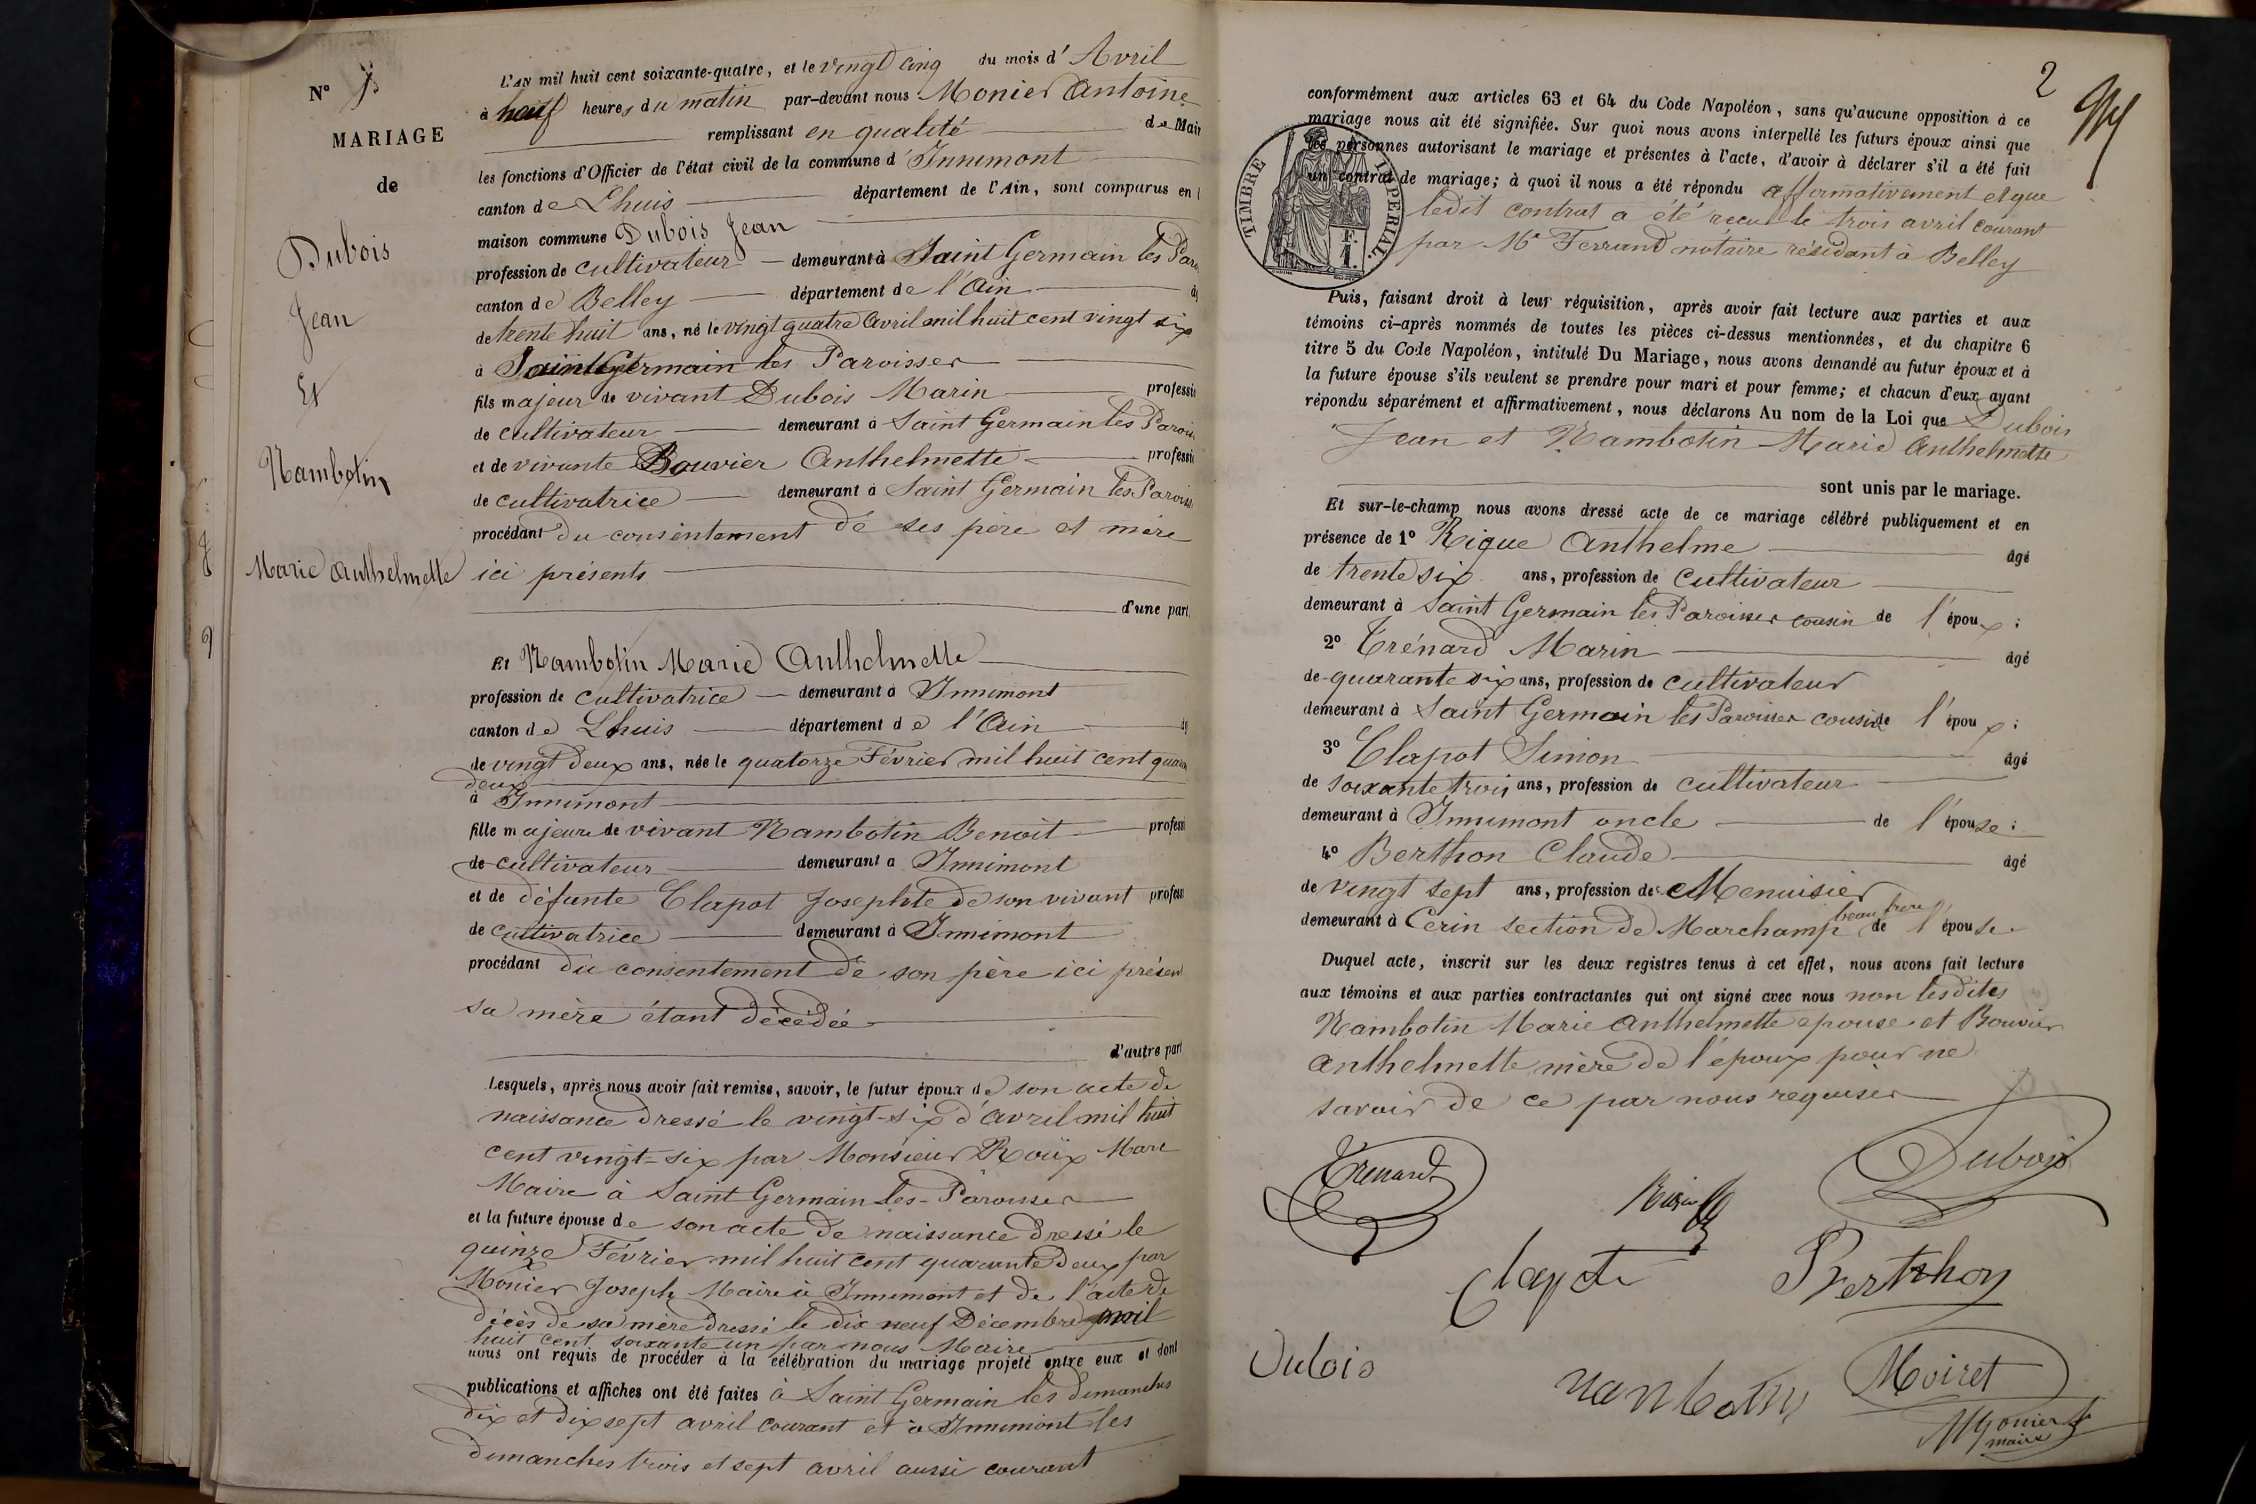 N° 3
MARIAGE
de
Dubois
Jean
Et
Nambotin
Marie Anthelmette
L'AN mil huit cent soixante-quatre, et le vingt cinq du mois d'Avril
à neuf heures du matin par-devant nous Monier Antoine
remplissant en qualité de Mair
les fonctions d'Officier de l'état civil de la commune d'Innimont
canton de Lhuis département de l'Ain, sont comparus en l
maison commune Dubois Jean
profession de cultivateur demeurant à Saint Germain les Paro
canton de Belley département de l'Ain
de trente huit ans, né le vingt quatre avril mil huit cent vingt six
à Saint Germain les Paroisses
fils majeur de vivant Dubois Marin professi
de cultivateur demeurant à Saint Germain les Parois
et de vivante Bouvier Anthelmette professi
de cultivatrice demeurant à Saint Germain les Paroiss
procédant du consentement de ses père et mère
ici présents
d'une part
Et Nambotin Marie Anthelmette
profession de cultivatrice demeurant à Innimont
canton de Lhuis département de l'Ain
de vingt deux ans, née le quatorze Février mil huit cent quara
deux
à Innimont
fille majeure de vivant Nambotin Benoit profess
de cultivateur demeurant à Innimont
et de défunte Clapot Josephte de son vivant profess
de cultivatrice demeurant à Innimont
procédant du consentement de son père ici présent
sa mère étant décédée
d'autre part
Lesquels, après nous avoir fait remise, savoir, le futur époux de son acte de
naissance dressé le vingt-six d'avril mil huit
cent vingt-six par Monsieur Roux Marc
Maire à Saint Germain les-Paroisses
et la future épouse de son acte de naissance dressé le
quinze Février mil huit cent quarante deux par
Monier Joseph Maire à Innimont et de l'acte de
décès de sa mère dressé le dix neuf Décembre mil
huit cent soixante un par nous Maire
nous ont requis de procéder à la célébration du mariage projeté entre eux et dont
publications et affiches ont été faites à Saint Germain les dimanches
dix et dix sept avril courant et à Innimont les
dimanches trois et sept avril aussi courant
2
conformément aux articles 63 et 64 du Code Napoléon, sans qu'aucune opposition à ce
mariage nous ait été signifiée. Sur quoi nous avons interpellé les futurs époux ainsi que
les personnes autorisant le mariage et présentes à l'acte, d'avoir à déclarer s'il a été fait
un contrat de mariage; à quoi il nous a été répondu affirmativement et que
ledit contrat a été recu le trois avril courant
par Me Ferrand notaire résidant à Belley
TIMBRE IMPERIAL.
F.
1.
Puis, faisant droit à leur réquisition, après avoir fait lecture aux parties et aux
témoins ci-après nommés de toutes les pièces ci-dessus mentionnées, et du chapitre 6
titre 5 du Code Napoléon, intitulé Du Mariage, nous avons demandé au futur époux et à
la future épouse s'ils veulent se prendre pour mari et pour femme; et chacun d'eux ayant
répondu séparément et affirmativement, nous déclarons Au nom de la Loi que Dubois
Jean et Nambotin Marie Anthelmette
sont unis par le mariage.
Et sur-le-champ nous avons dressé acte de ce mariage célébré publiquement et en
présence de 1° Rique Anthelme âgé
de trente six ans, profession de cultivateur
demeurant à Saint Germain les Paroisses cousin de l'époux;
2° Trénard Marin âgé
de quarante six ans, profession de cultivateur
demeurant à Saint Germain les Paroisses cousin de l'époux;
3° Clapot Simon âgé
de soixante trois ans, profession de cultivateur
demeurant à Innimont oncle de l'épouse;
4° Berthon Claude âgé
de vingt sept ans, profession de Menuisier
demeurant à Cerin section de Marchamp beau frere de l'épouse.
Duquel acte, inscrit sur les deux registres tenus à cet effet, nous avons fait lecture
aux témoins et aux parties contractantes qui ont signé avec nous non lesdites
Nambotin Marie Anthelmette epouse et Bouvier
Anthelmette mère de l'époux pour ne
savoir de ce par nous requises
Trenard
Dubois
Clapot
Berthon
Dubois
nanbotin
Moiret
Monier
maire